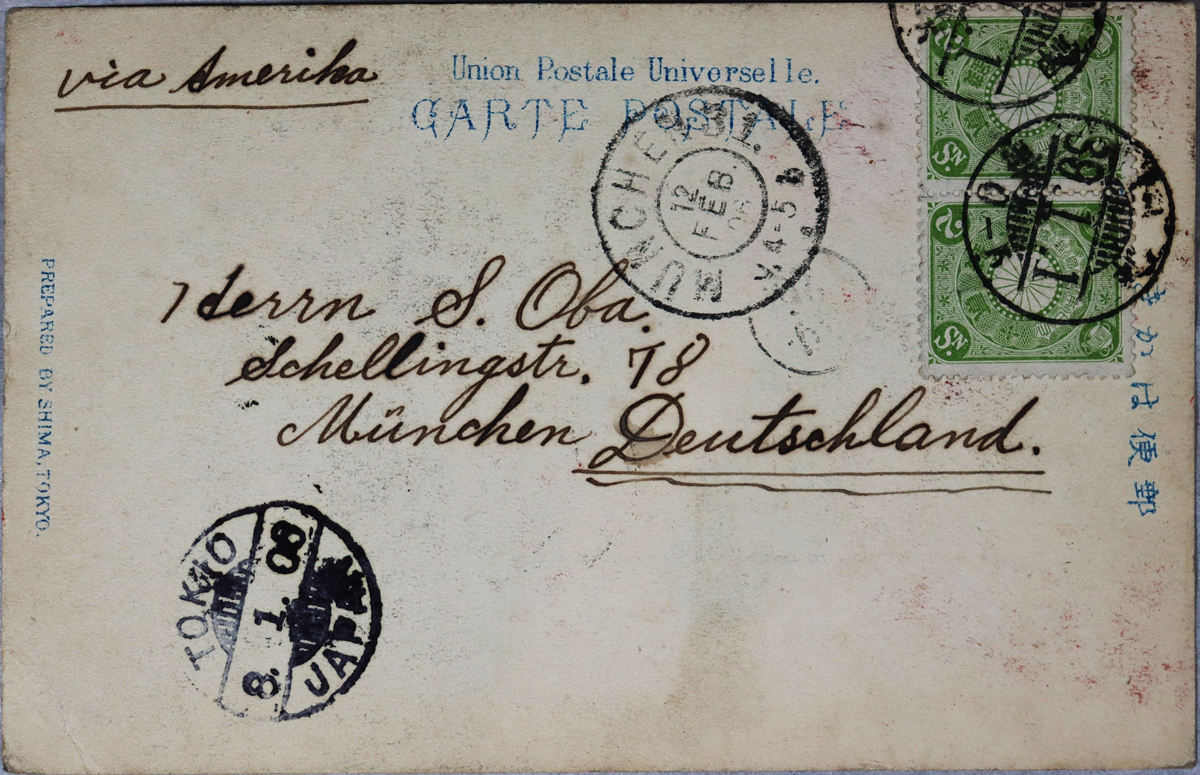 via Amerika
Union Postale Universelle.
CARTE POSTALE
MÜNCHEN 31.
12
FEB.
4-5
Herrn S. Oba.
Schellingstr. 78
München Deutschland.
PREPARED BY SHIMA, TOKYO.
きかは便郵
TOKIO
8. 1. 08
JAPAN
38
1. 1
2
Sn.
Sn.